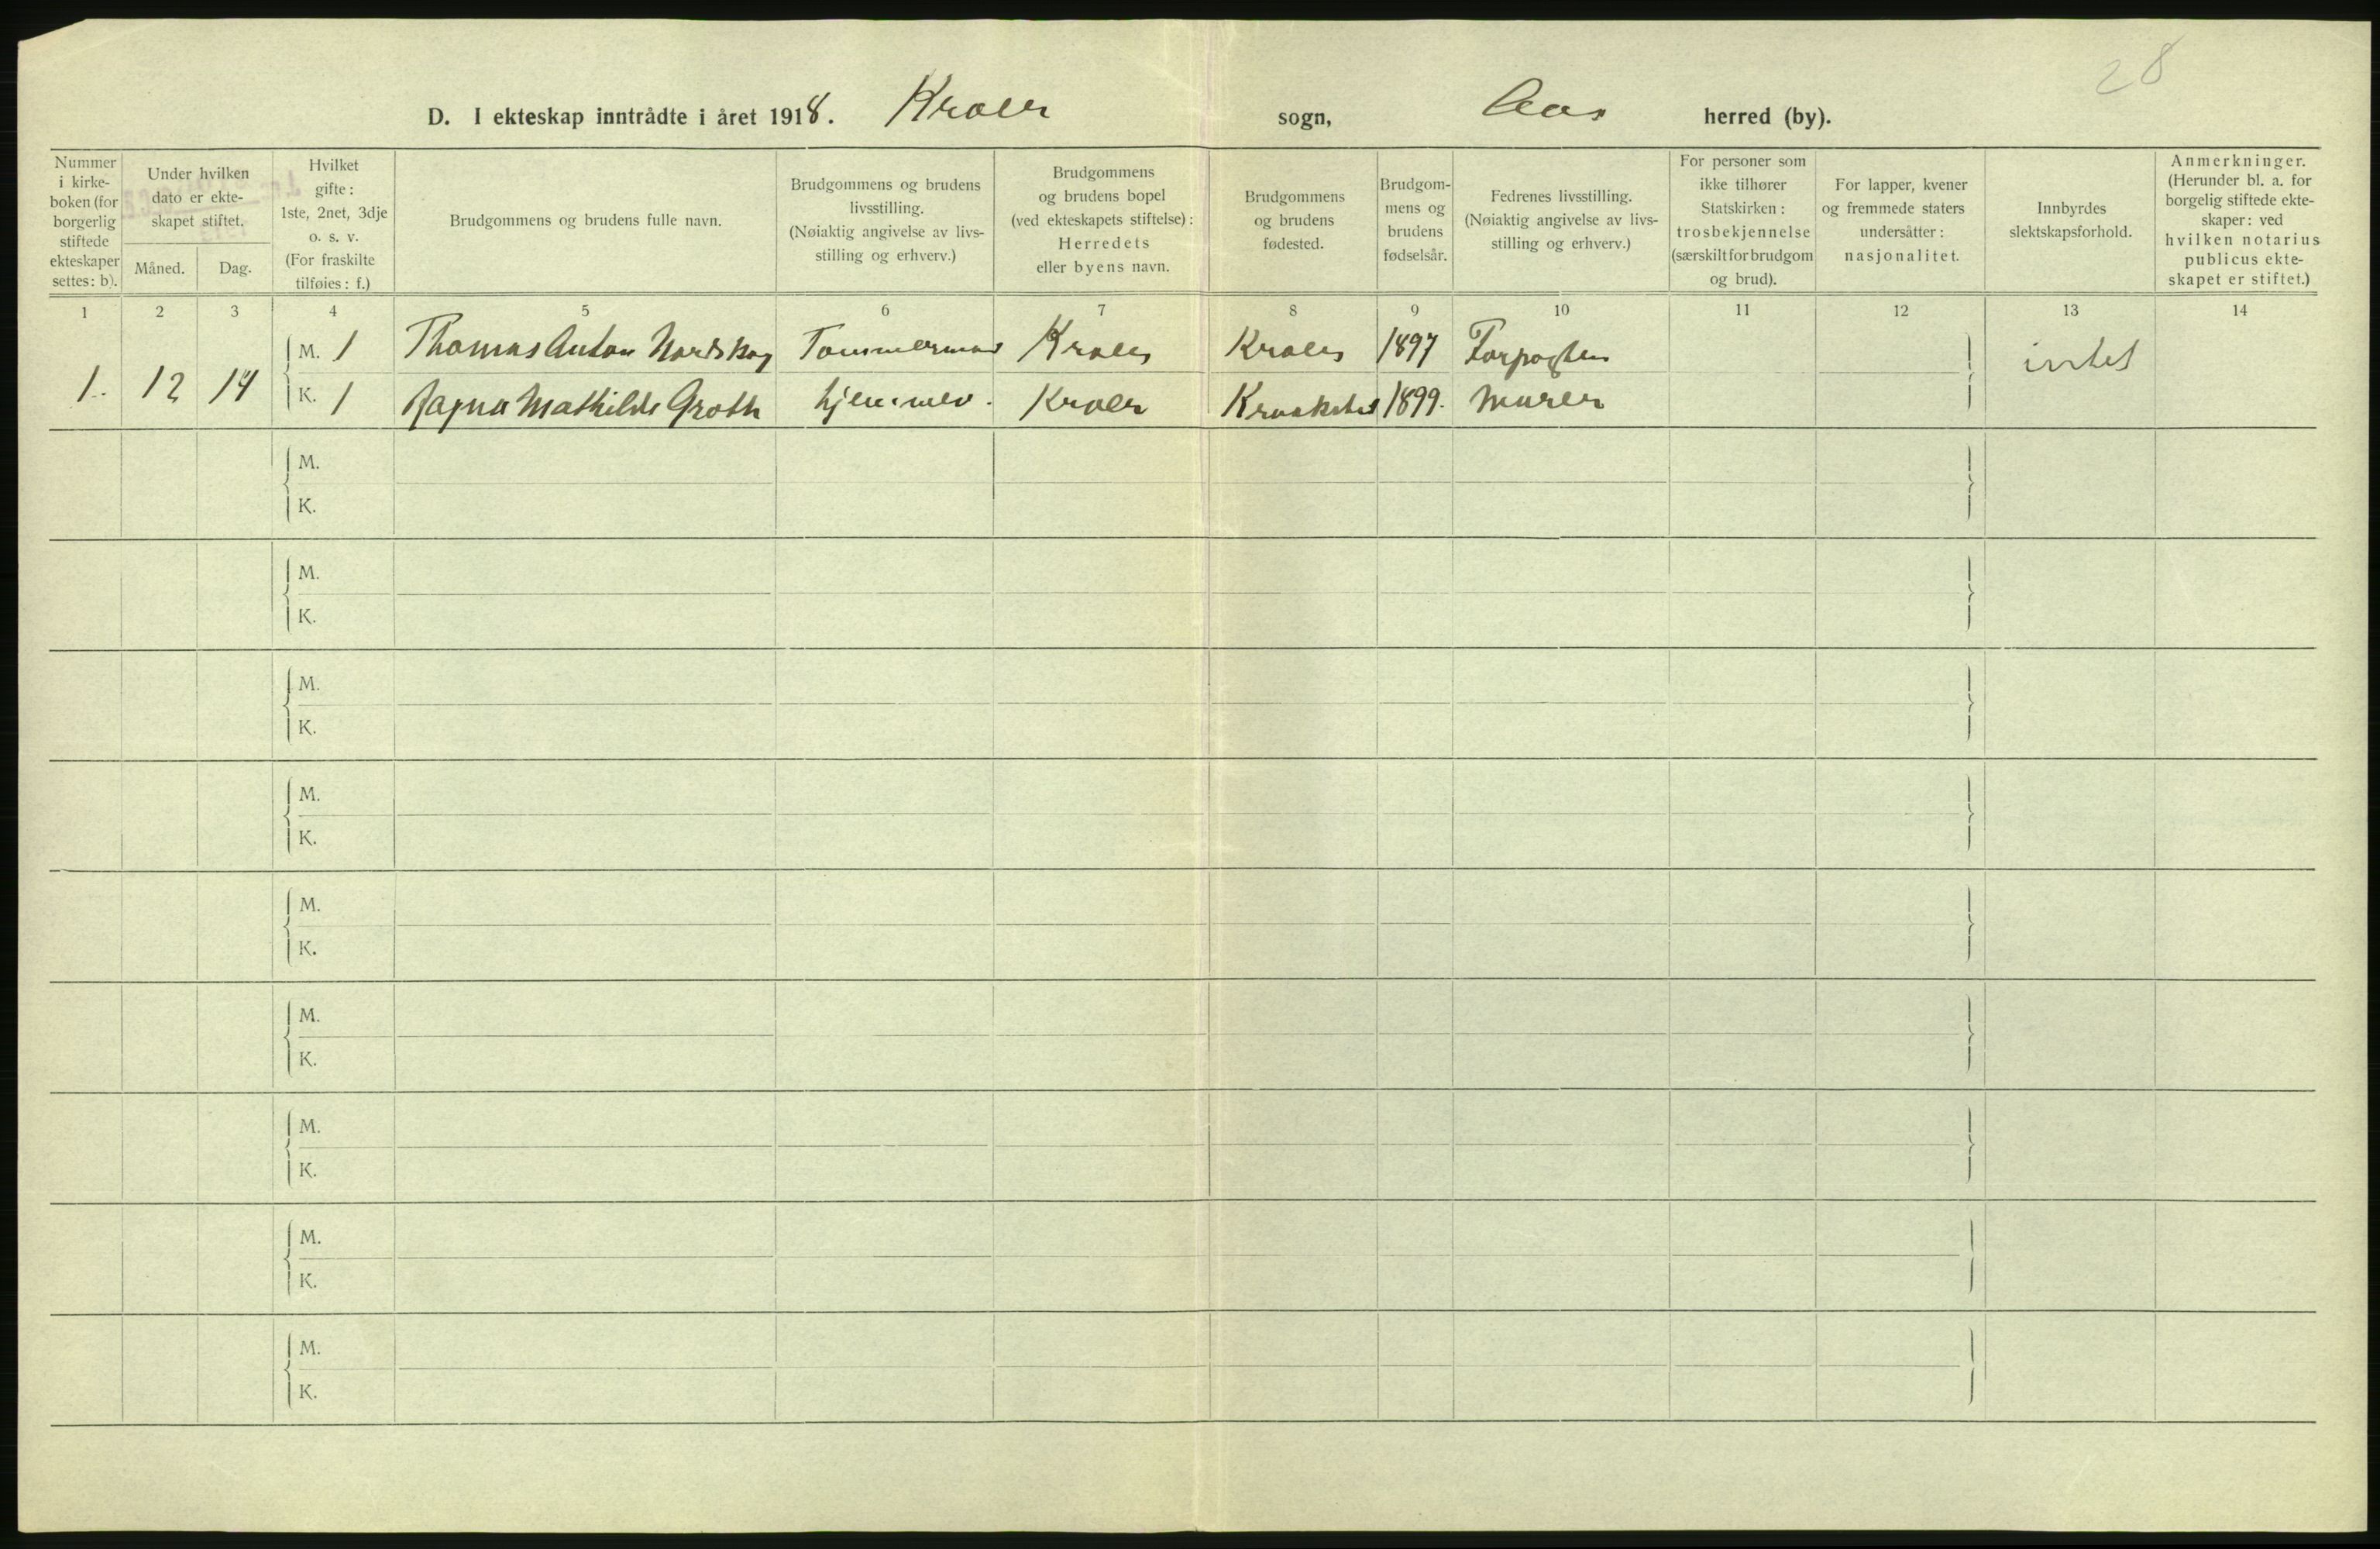 28
D. I ekteskap inntrådte i året 1918. Kroer sogn, Aas herred (by).
Nummer i kirkeboken (for borgerlig stiftede ekteskaper settes: b).
Under hvilken dato er ekteskapet stiftet.
Måned. Dag.
Hvilket gifte: 1ste, 2net, 3dje o. s. v. (For fraskilte tilføies: f.)
Brudgommens og brudens fulle navn.
Brudgommens og brudens livsstilling. (Nøiaktig angivelse av livsstilling og erhverv.)
Brudgommens og brudens bopel (ved ekteskapets stiftelse): Herredets eller byens navn.
Brudgommens og brudens fødested.
Brudgommens og brudens fødselsår.
Fedrenes livsstilling. (Nøiaktig angivelse av livsstilling og erhverv.)
For personer som ikke tilhører Statskirken: trosbekjennelse (særskilt for brudgom og brud).
For lapper, kvener og fremmede staters undersåtter: nasjonalitet.
Innbyrdes slektskapsforhold.
Anmerkninger. (Herunder bl. a. for borgelig stiftede ekteskaper: ved hvilken notarius publicus ekteskapet er stiftet.)
1 2 3 4 5 6 7 8 9 10 11 12 13 14
M. 1 Thomas Anton Nordskog Tømmermand Kroer Kroer 1897 Forpagter intet
1. 12 14
K. 1 Ragna Mathilde Groth hjemmev. Kroer Kraakstad 1899. Murer
M.
K.
M.
K.
M.
K.
M.
K.
M.
K.
M.
K.
M.
K.
M.
K.
M.
K.